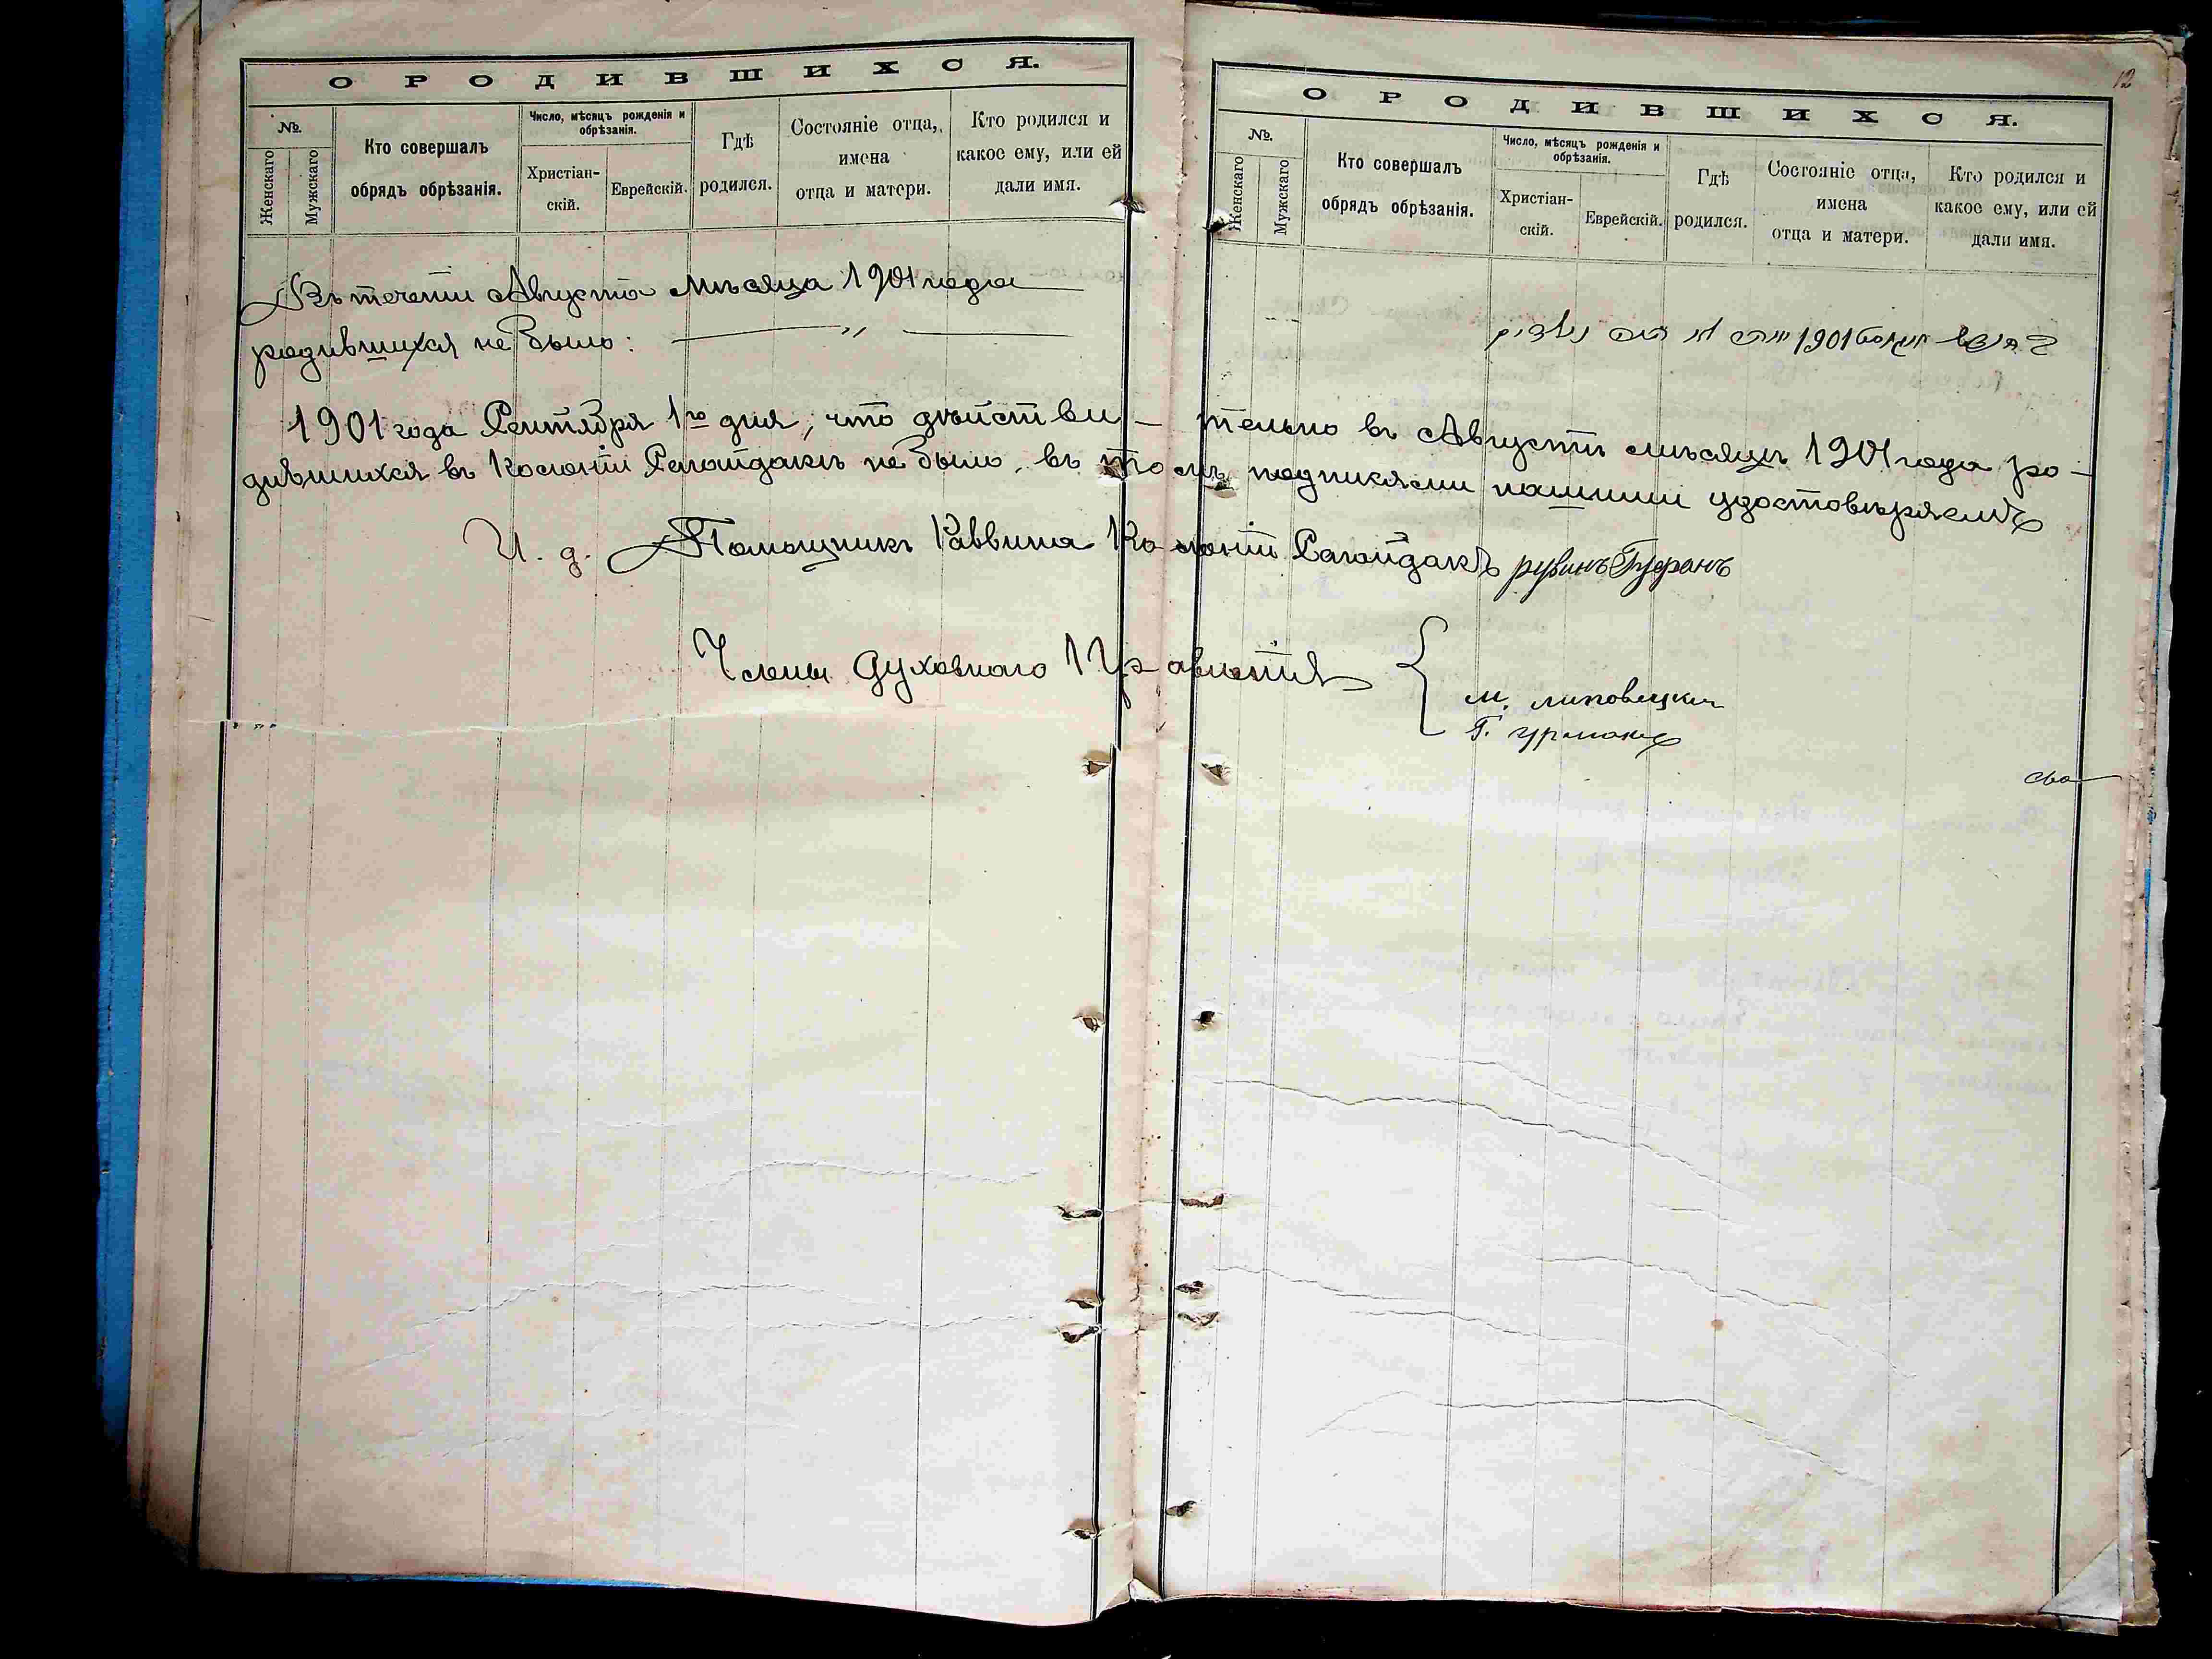 О РОДИВШИХСЯ.
№.
Женскаго
Мужскаго
Кто совершалъ
обрядъ обрѣзанія.
Число, мѣсяцъ рожденія и
обрѣзанія.
Христіан-
скій.
Еврейскій.
Гдѣ
родился.
Состояніе отца,
имена
отца и матери.
Кто родился и
какое ему, или ей
дали имя.
Въ теченіи Августа мѣсяца 1901 года
родившихся не было: — " —
12
О РОДИВШИХСЯ.
№.
Женскаго
Мужскаго
Кто совершалъ
обрядъ обрѣзанія.
Число, мѣсяцъ рожденія и
обрѣзанія.
Христіан-
скій.
Еврейскій.
Гдѣ
родился.
Состояніе отца,
имена
отца и матери.
Кто родился и
какое ему, или ей
дали имя.
1901
1901 года Сентября 1го дня, что дѣйстви- тельно въ Августѣ мѣсяцѣ 1901 года ро-
дившихся въ Колоніи Сагайдакъ не было, въ томъ подписями нашими удостовѣряемъ
И. д. Помощникъ Раввина Колоніи Сагайдакъ рувинъ
Члены Духовнаго Правленія
М. липовецкий
Г.
сва